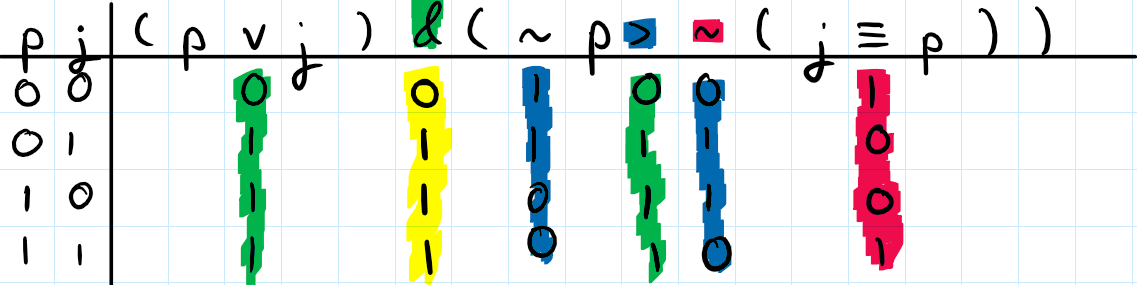 p j ( p ∨ j ) & ( ~ p > ~ ( j ≡ p ) )
0 0 0 0 1 0 0 1
0 1 1 1 1 1 1 0
1 0 1 1 0 1 1 0
1 1 1 1 0 1 0 1